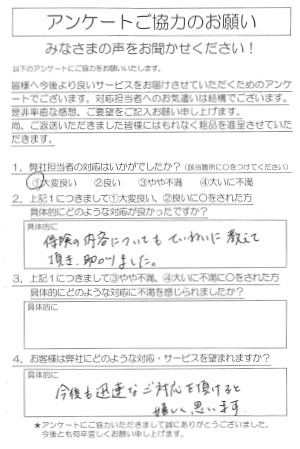 アンケートご協力のお願い
みなさまの声をお聞かせください！
以下のアンケートにご協力をお願いいたします。
皆様へ今後より良いサービスをお届けさせていただくためのアンケ
ートでございます。対応担当者へのお気遣いは結構でございます。
是非率直な感想、ご要望をご記入お願い申し上げます。
尚、ご返送いただきました皆様にはもれなく粗品を進呈させていた
だきます。
1．弊社担当者の対応はいかがでしたか？（該当箇所に○をつけてください）
①大変良い　②良い　③やや不満　④大いに不満
2．上記1につきまして①大変良い、②良いに○をされた方
具体的にどのような対応が良かったですか？
具体的に
保険の内容についても ていねいに 教えて
頂き、助かりました。
3．上記1につきまして③やや不満、④大いに不満に○をされた方
具体的にどのような対応に不満を感じられましたか？
具体的に
4．お客様は弊社にどのような対応・サービスを望まれますか？
具体的に
今後も迅速なご対応を頂けると
嬉しく思います
★アンケートにご協力いただきまして誠にありがとうございました。
今後とも何卒宜しくお願い申し上げます。